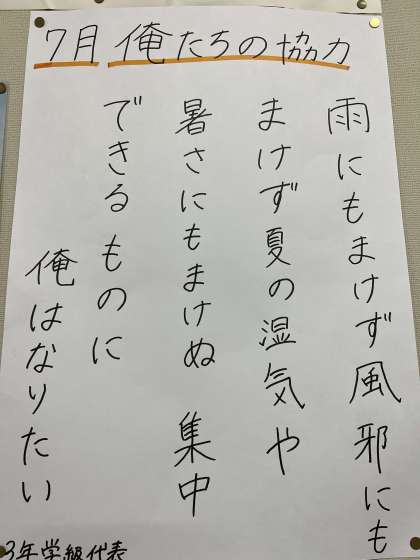 7月 俺たちの協力
雨にもまけず風邪にも
まけず夏の湿気や
暑さにもまけぬ 集中
できるものに
俺はなりたい
3年学級代表